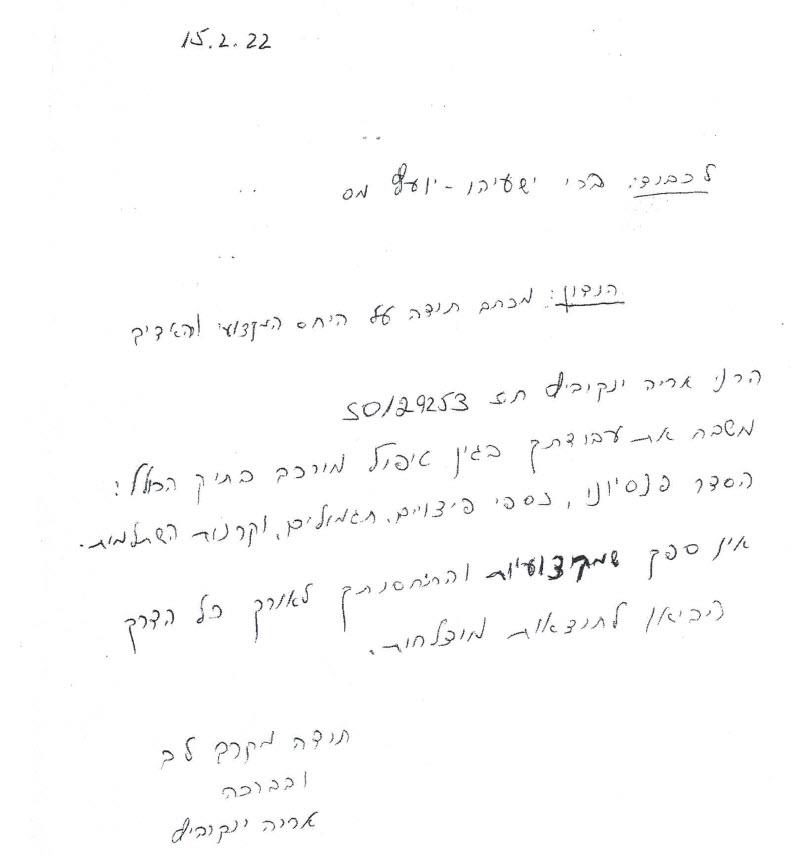 15.2.22
לכבוד: ברי ישעיהו - יועץ מס
הנדון: מכתב תודה על היחס המקצועי והאדיב
הרני אריה ינקוביץ ת.ז 50129253
משבח את עבודתך בגין טיפול מורכב בתיק הכולל:
הסדר פנסיוני, כספי פיצויים, תגמולים, וקרנות השתלמות.
אין ספק שמקצועיות והתיחסותך לאורך כל הדרך
הביאו לתוצאות מוצלחות.
תודה מקרב לב
ובברכה
אריה ינקוביץ